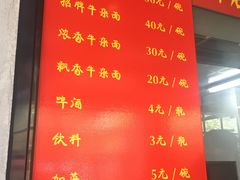 招牌牛杂面
40元/碗
浓香牛杂面
30元/碗
飘香牛杂面
20元/碗
啤酒
4元/瓶
饮料
3元/瓶
5元/碗